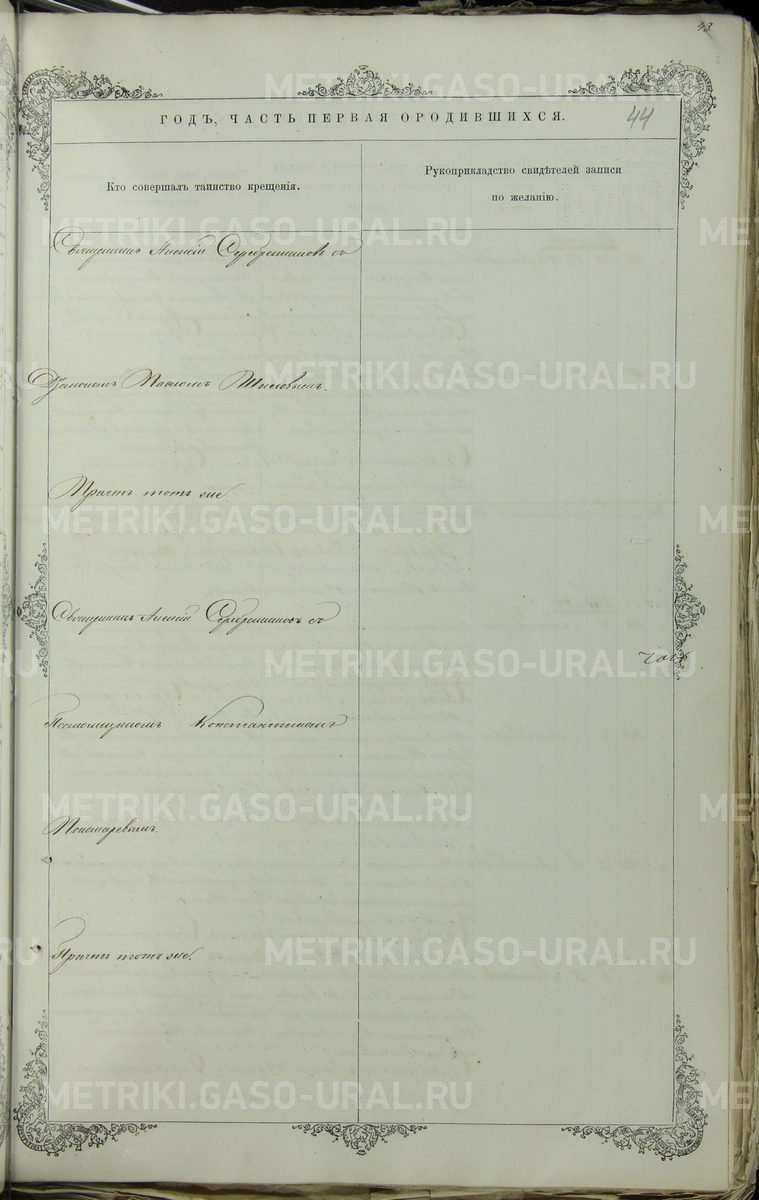 43.
ГОДЪ, ЧАСТЬ ПЕРВАЯ ОРОДИВШИХСЯ.
44
Кто совершалъ таинство крещенія.
Рукоприкладство свидѣтелей записи
по желанію.
Священникъ Алексій Серебренниковъ съ
Діакономъ Павломъ Шиловымъ.
Причтъ тотъ же.
Священникъ Алексій Серебренниковъ съ
Псаломщикомъ Константиномъ
Пономаревымъ.
Причтъ тотъ же.
METRIKI.GASO-URAL.RU